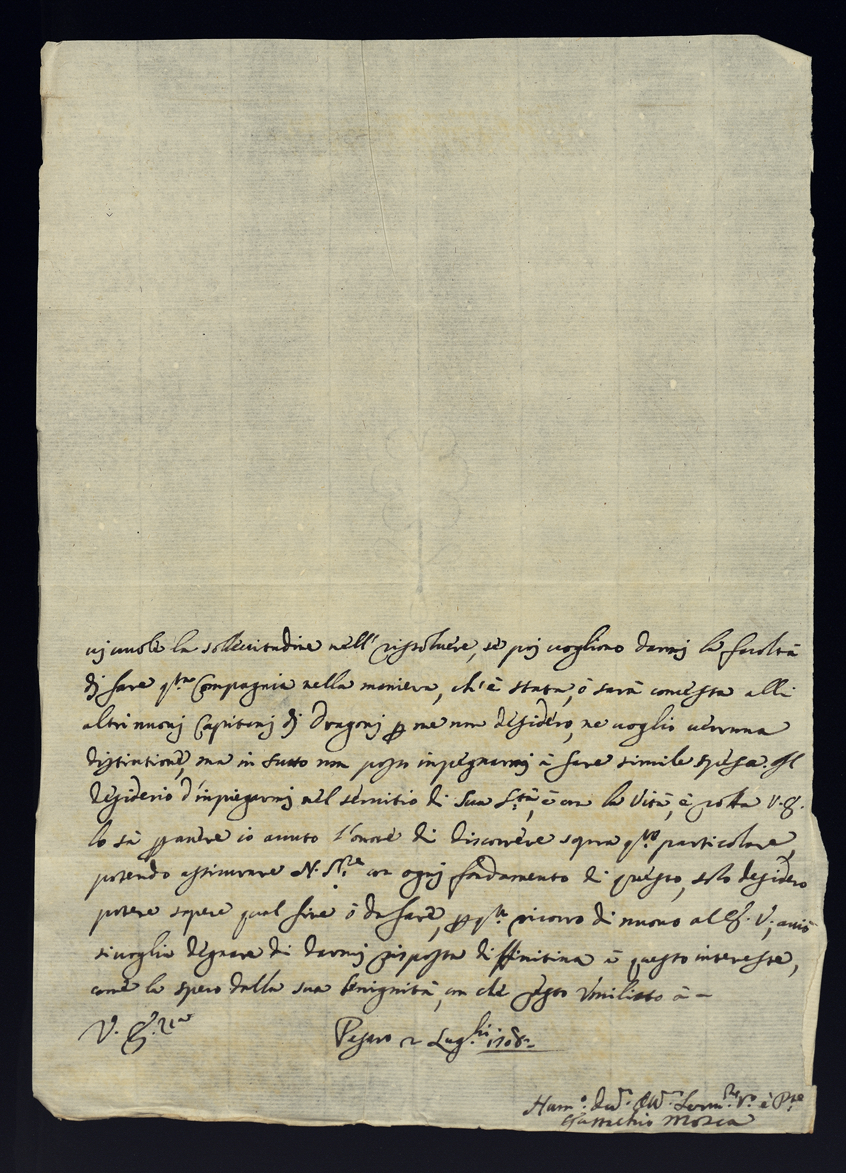 ui uuole la sollecitudine nell' rissoluere, se poi uogliono darmi la facoltà
di fare q.ta Compagnia nella maniera, ch'è stata, ò sarà concessa alli
altri nuoui Capitani di Dragoni p me non desidero, ne uoglio ueruna
distintione, ma in tutto non posso inpegnarmi à fare simile spesa. Il
desiderio d'inpiegarmi nel seruitio di Sua S.tà, è con la Vita, è V. E.
lo sà p auere io auuto l'onore di discorrere sopra q.to particolare,
potendo assicurare N. S.re con ogni fondamento di questo, solo desidero
potere sapere qual fine ò da fare, p q.to ricorro di nuouo al E. V., acciò
si uoglia degnare di darmi risposta diffinitiua à questo interesse,
come lo spero dalla sua benignità, con che resto Vmiliato à –
V. E.za
Pesaro 2 Lug.li 1708
Hum.o Deu.o Serui.re V.o è
Mosca